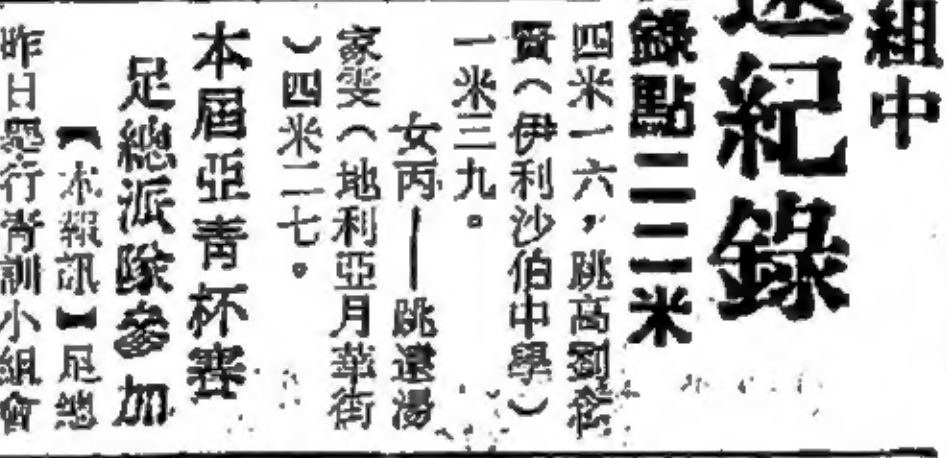 組中
遠紀錄
錄點二二米
四米一六,跳高劉
賢(伊利沙伯中學)
一米三九。
女丙——跳遠湯
家雯(地利亞月華街
)四米二七。
本屆亞青杯賽
足總派隊參加
【本報訊】足總
昨日舉行青訓小組會